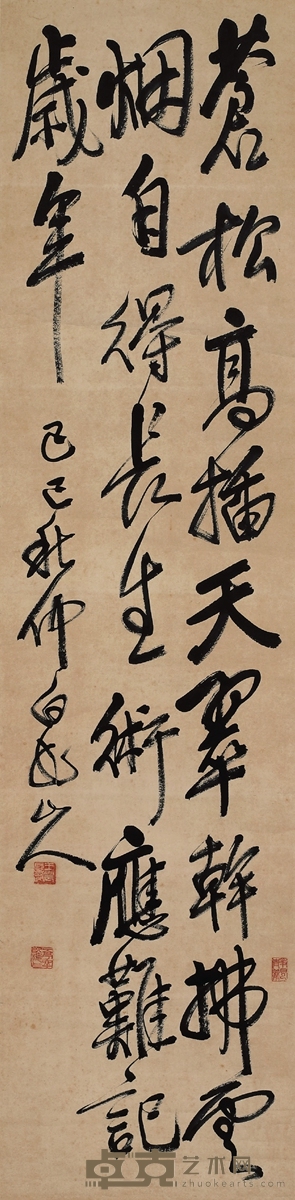 蒼松高插天翠幹拂雲
烟自得長生術應難記
歲年
己巳秋仲白龍山人
卓克艺术网
www.zhuokearts.com